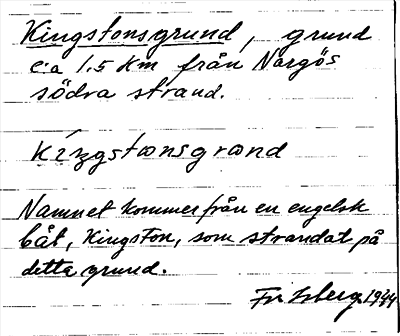 Kingstonsgrund, grund
c:a 1.5 Km från Nargös
södra strand.
Kíŋgstonsgrand
Namnet kommer från en engelsk
båt, Kingston, som strandat på
detta grund.
1944